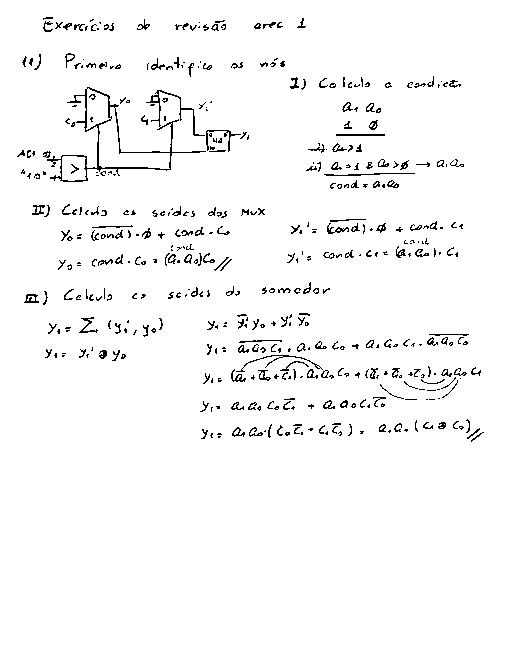 Exercícios de revisão arec 1
(1) Primeiro identifico os nós
I) Calculo a condição
a₁ a₀
1 0
i) a₁>1
ii) a₁=1 & a₀>0 → a₁a₀
cond = a₁a₀
0
y₀
C₀
1
0
y₁'
C₁
1
HA
y₁
"10"
>
cond
II) Calculo as saídas dos MUX
y₀ = \overline{(cond)}·0 + cond·C₀
y₁' = \overline{(cond)}·0 + cond·C₁
cond
y₀ = cond·C₀ = (a₁a₀)C₀ //
cond
y₁' = cond·C₁ = (a₁a₀)·C₁
III) Calculo as saídas do somador
y₁ = Σ (y₁', y₀)
y₁ = y₁' ⊕ y₀
y₁ = \overline{y₁'} y₀ + y₁' \overline{y₀}
y₁ = \overline{a₁a₀C₁} · a₁a₀C₀ + a₁a₀C₁ · \overline{a₁a₀C₀}
y₁ = (\overline{a₁}+\overline{a₀}+\overline{c₁})·a₁a₀C₀ + (\overline{a₁}+\overline{a₀}+\overline{c₀})·a₁a₀C₁
y₁ = a₁a₀C₀\overline{C₁} + a₁a₀C₁\overline{C₀}
y₁ = a₁a₀·(C₀\overline{C₁} + C₁\overline{C₀}) = a₁a₀(C₁⊕C₀) //